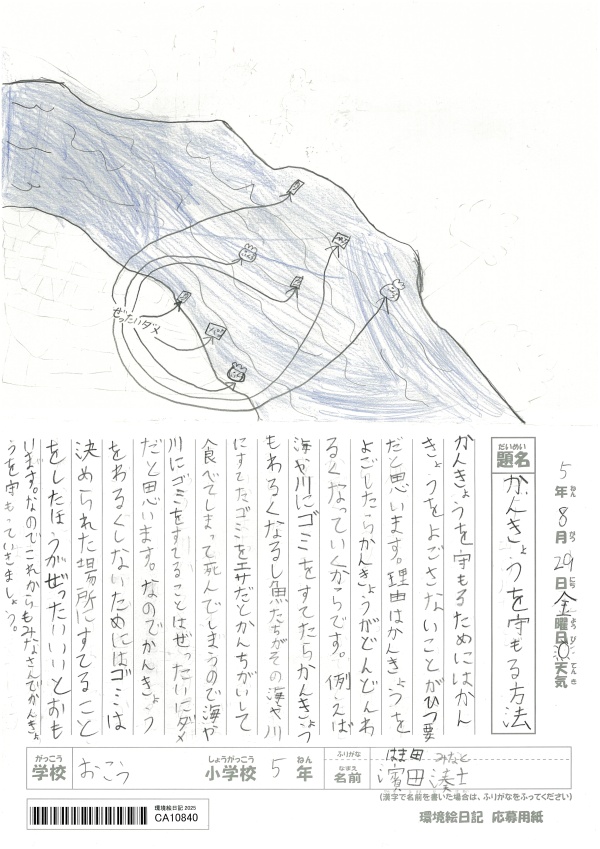 ぜったいダメ
5年8月29日金曜日 天気
ねん がつ にち ようび てんき
だいめい
題名 かんきょうを守もる方法
かんきょうを守もるためにはかん
きょうをよごさないことがひつ要
だと思います。理由はかんきょうを
よごしたらかんきょうがどんどんわ
るくなっていくからです。例えば
海や川にゴミをすてたらかんきょう
もわるくなるし魚たちがその海や川
にすてたゴミをエサだとかんちがいして
食べてしまって死んでしまうので海や
川にゴミをすてることはぜったいにダメ
だと思います。なのでかんきょう
をわるくしないためにはゴミは
決められた場所にすてること
をしたほうがぜったいいいとおも
います。なのでこれからもみなさんでかんきょ
うを守もっていきましょう。
がっこう しょうがっこう ねん ふりがな みなと
学校 おこう 小学校 5年
なまえ
名前 濱田湊士
(漢字で名前を書いた場合は、ふりがなをふってください)
環境絵日記 2025
CA10840
環境絵日記 応募用紙